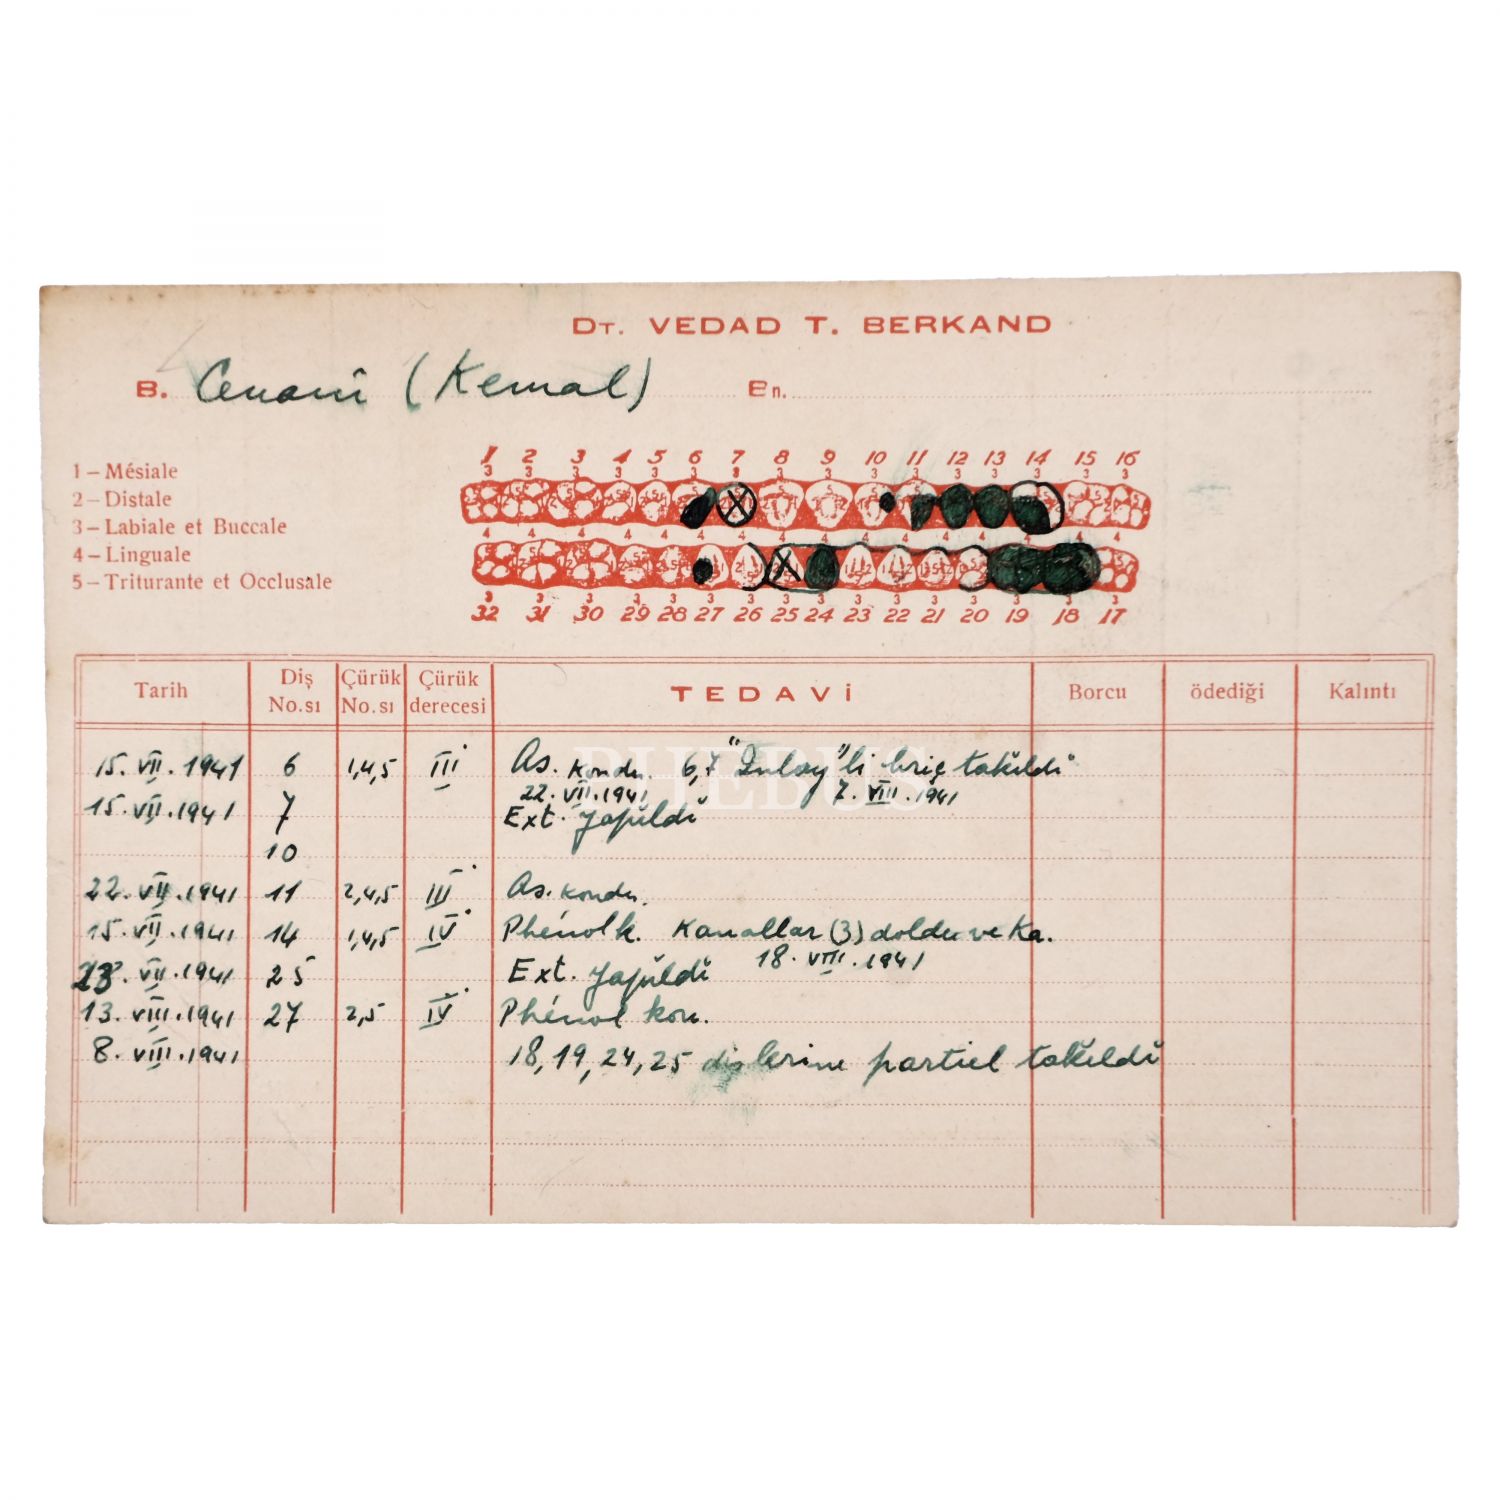 DT. VEDAD T. BERKAND
B. Cenanî (Kemal) Bn.
1 – Mésiale
2 – Distale
3 – Labiale et Buccale
4 – Linguale
5 – Triturante et Occlusale
1 2 3 4 5 6 7 8 9 10 11 12 13 14 15 16
32 31 30 29 28 27 26 25 24 23 22 21 20 19 18 17
Tarih Diş No.sı Çürük No.sı Çürük derecesi TEDAVİ Borcu ödediği Kalıntı
15.VII.1941 6 1,4,5 III As. kondu. 6,7 "Inlay"li briç takıldı
22.VII.1941 7.VIII.1941
15.VII.1941 7 Ext. yapıldı
10
22.VII.1941 11 2,4,5 III As. kondu.
15.VII.1941 14 1,4,5 IV Phénol k. Kanallar (3) doldu ve ka.
18.VIII.1941
23.VII.1941 25 Ext. yapıldı
13.VIII.1941 27 2,5 IV Phénol kon.
8.VIII.1941 18,19,24,25 dişlerine partiel takıldı
PHEBUS